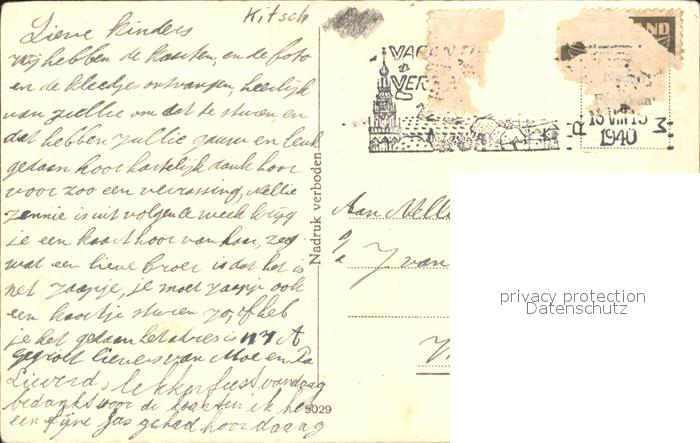 Kitsch
Lieve kinders
Wij hebben de kaarten, en de foto
en de kleedjes ontvangen, heerlijk
van jullie om dat te sturen en
dat hebben jullie gauw en leuk
gedaan hoor hartelijk dank hoor
voor zoo een verrassing, Nellie
Jennie is uit volgende week krijg
je een kaart hoor van haar, zeg
wat een lieve broer is dat het is
net Jaapje, je moet Jaapje ook
een kaartje sturen zo, of heb
je het gedaan het adres is 117 A
lievers van Moe en Pa
Lieverd, lekker feest vandaag
bedankt voor de kaarten ik heb
een fijne Jas gehad hoor daaag
Nadruk verboden
8029
VACAN
VER
LAND
16 VIII 15
1940
R M
Aan Nelle
J van
privacy protection
Datenschutz